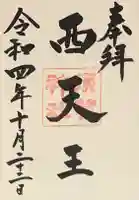 奉拝
西天王
令和四年十月二十二日